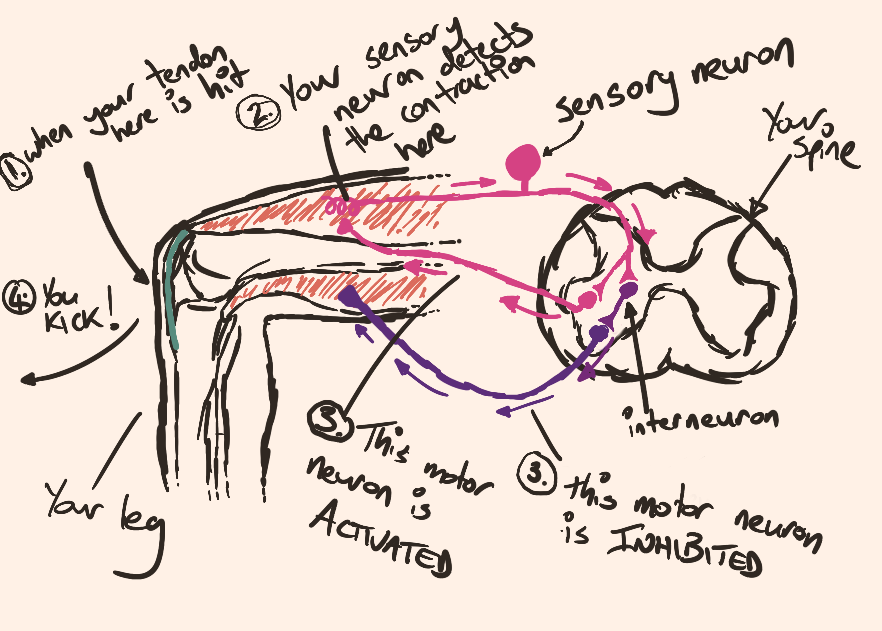 1. when your tendon
here is hit
2. Your sensory
neuron detects
the contraction
here
sensory neuron
Your
spine
4. You
KICK!
Your leg
3. This motor
neuron is
ACTIVATED
interneuron
3. this motor neuron
is INHIBITED